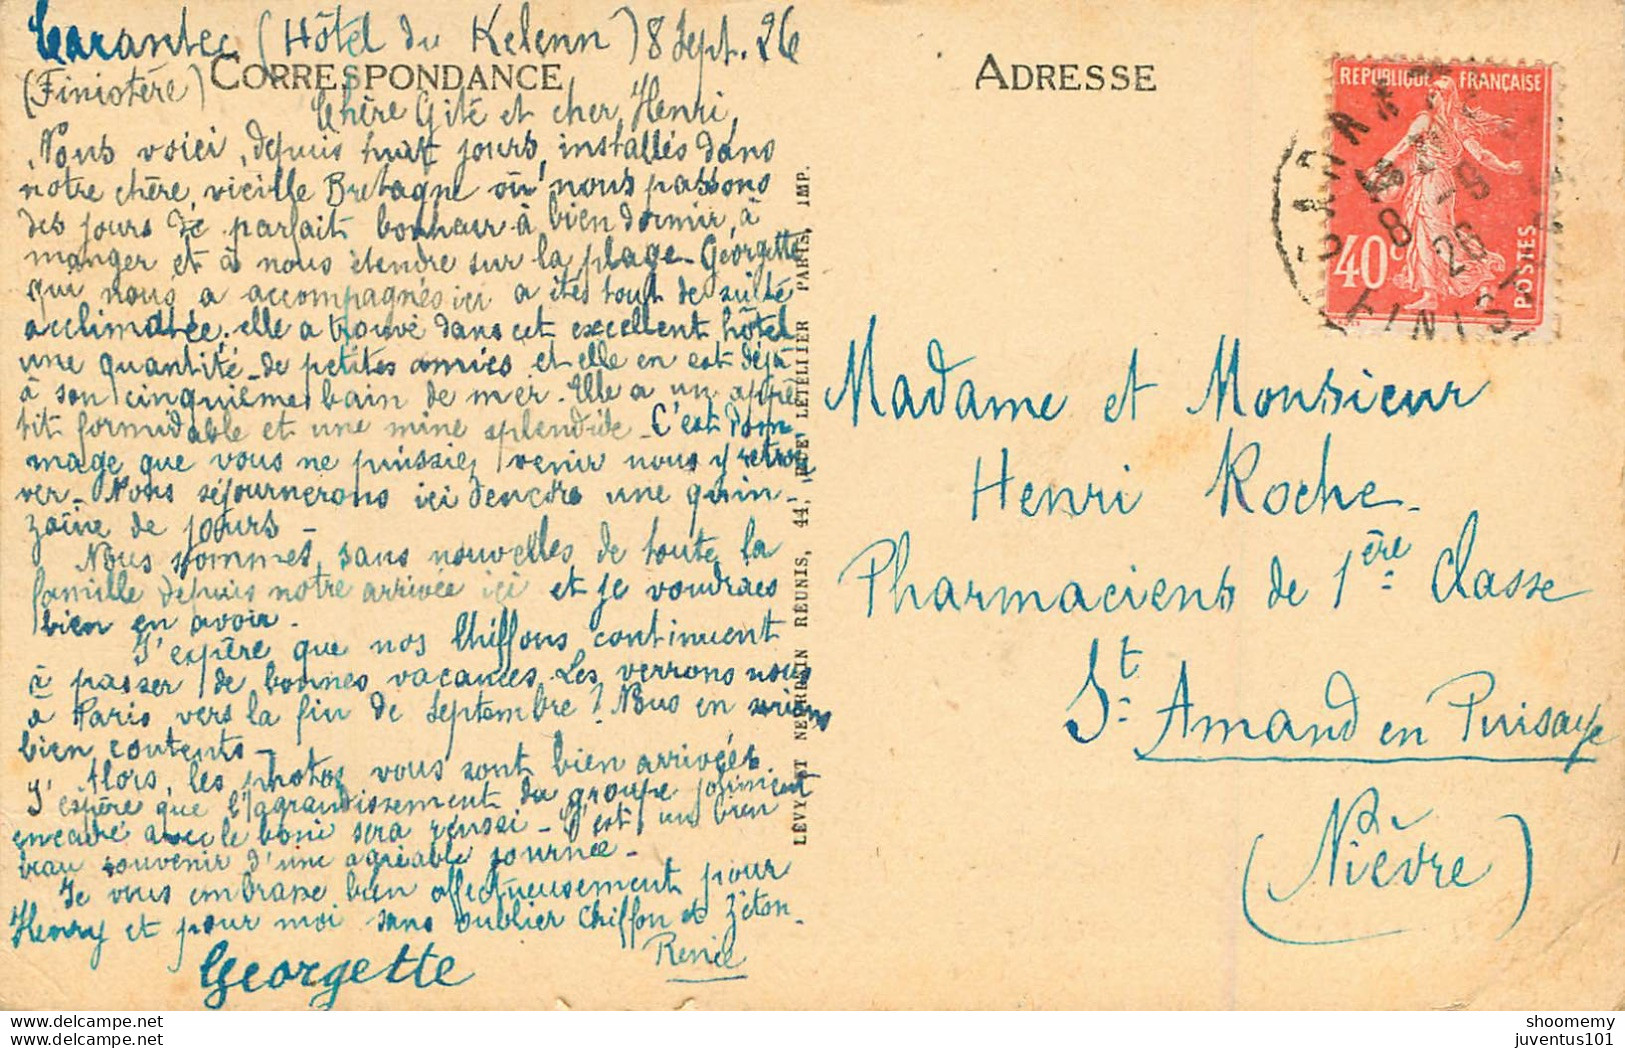 Carantec (Hôtel du Kelenn) 8 Sept. 26
(Finistère)
CORRESPONDANCE
Chère Gité et cher Henri,
Nous voici, depuis huit jours, installés dans
notre chère, vieille Bretagne où nous passons
des jours de parfait bonheur à bien dormir, à
manger et à nous étendre sur la plage - Georgette
qui nous a accompagnés ici a étés tout de suite
acclimatée. elle a trouvé dans cet excellent hôtel
une quantité de petites amies et elle en est déjà
à son cinquième bain de mer. Elle a un appé
tit formidable et une mine splendide - C'est dom
mage que vous ne puissiez venir nous y retrou
ver - Nous séjournerons ici encore une quin-
zaine de jours -
Nous sommes, sans nouvelles de toute la
famille depuis notre arrivée ici et je voudrais
bien en avoir -
J'espère que nos Chiffons continuent
à passer de bonnes vacances. Les verrons nous
à Paris vers la fin de Septembre ? Nous en serions
bien contents -
Alors, les photos vous sont bien arrivées.
J'espère que l'agrandissement du groupe joliment
encadré avec le bord sera réussi - C'est un bien
beau souvenir d'une agréable journée -
Je vous embrasse bien affectueusement pour
Henry et pour moi sans oublier Chiffon et Zéton -
Renée
Georgette
LÉVY ET NEURDEIN RÉUNIS, 44, RUE LETELLIER PARIS, IMP.
ADRESSE
REPUBLIQUE FRANÇAISE
40c
POSTES
8 -9
26
FINISTÈRE
Madame et Monsieur
Henri Roche -
Pharmaciens de 1ère Classe
St Amand en Puisaye
(Nièvre)
shoomemy
juventus101